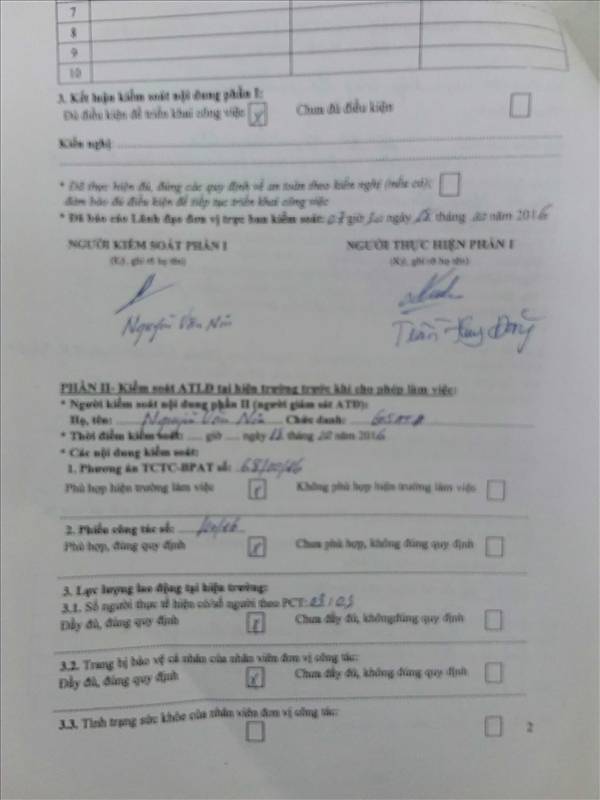 7
8
9
10
3. Kết luận kiểm soát nội dung phần I:
Đủ điều kiện để triển khai công việc x Chưa đủ điều kiện
Kiến nghị:
* Đã thực hiện đủ, đúng các quy định về an toàn theo kiến nghị (nếu có);
đảm bảo đủ điều kiện để tiếp tục triển khai công việc
* Đã báo cáo Lãnh đạo đơn vị trực ban kiểm soát: 07 giờ ngày tháng 10 năm 2016
NGƯỜI KIỂM SOÁT PHẦN I NGƯỜI THỰC HIỆN PHẦN I
(Ký, ghi rõ họ tên) (Ký, ghi rõ họ tên)
Nguyễn Văn Trần Huy
PHẦN II- Kiểm soát ATLĐ tại hiện trường trước khi cho phép làm việc:
* Người kiểm soát nội dung phần II (người giám sát ATĐ):
Họ, tên: Nguyễn Văn Chức danh: GSATĐ
* Thời điểm kiểm soát: .... giờ .... ngày tháng 10 năm 2016
* Các nội dung kiểm soát:
1. Phương án TCTC-BPAT số: 68/10/16
Phù hợp hiện trường làm việc x Không phù hợp hiện trường làm việc
2. Phiếu công tác số:
Phù hợp, đúng quy định x Chưa phù hợp, không đúng quy định
3. Lực lượng lao động tại hiện trường:
3.1. Số người thực tế hiện có/số người theo PCT: 03/03
Đầy đủ, đúng quy định x Chưa đầy đủ, khôngđúng quy định
3.2. Trang bị bảo vệ cá nhân của nhân viên đơn vị công tác:
Đầy đủ, đúng quy định x Chưa đầy đủ, không đúng quy định
3.3. Tình trạng sức khỏe của nhân viên đơn vị công tác:
2